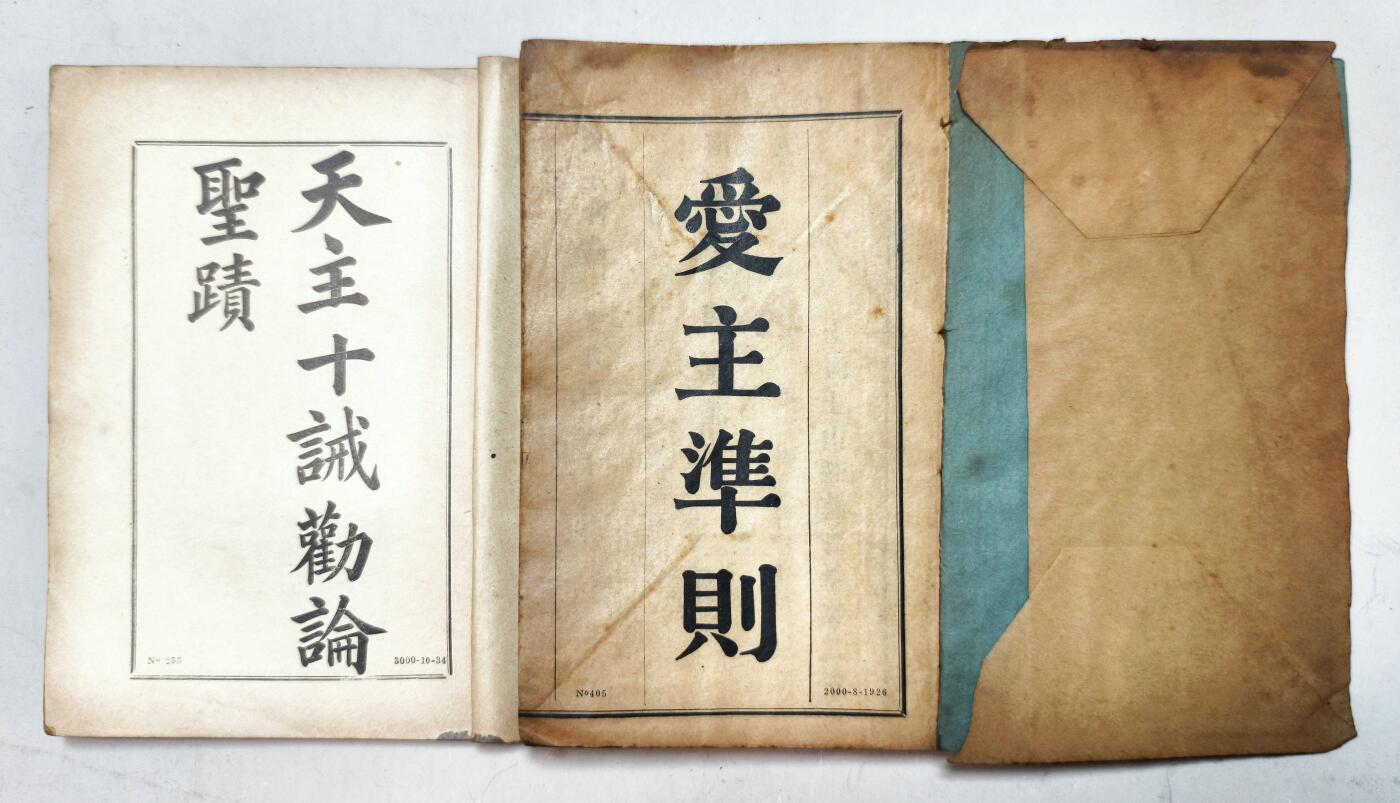 天主十誡勸論
聖蹟
No 255
3000-10-34
愛主準則
No405
2000-8-1926